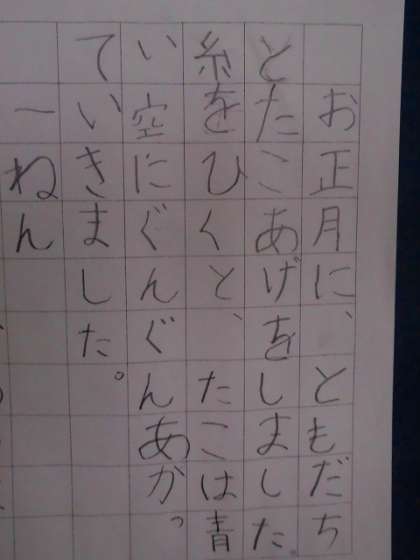 お正月に、ともだち
とたこあげをしました。
糸をひくと、たこは青
い空にぐんぐんあがっ
ていきました。
一ねん